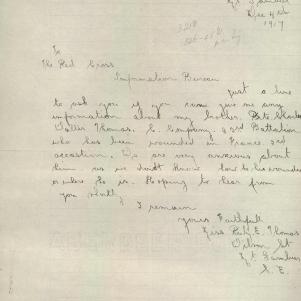 Dec 4th
1917
To
The Red Cross
Information Bureau
Just a line
to ask you if you could give me any
information about my brother, Pte Charles
Walter Thomas, C. Company, 43rd Battalion
who has been wounded in France, 3rd
occasion. We are very anxious about
him as we don't know how he is wounded
or where he is. Hoping to hear from
you shortly
I remain
Yours Faithfully
Miss Ruby E. Thomas
Wilson St
Mt Gambier
S. E.